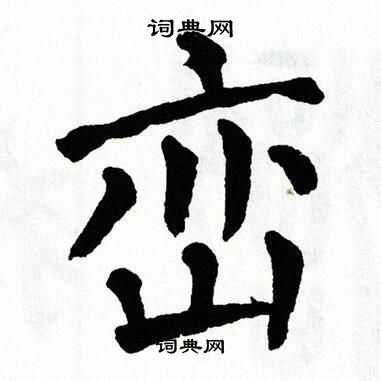 词典网
峦
词典网